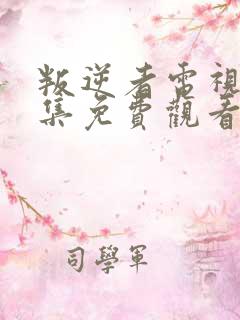 叛逆者電視
集免費觀看
司學軍